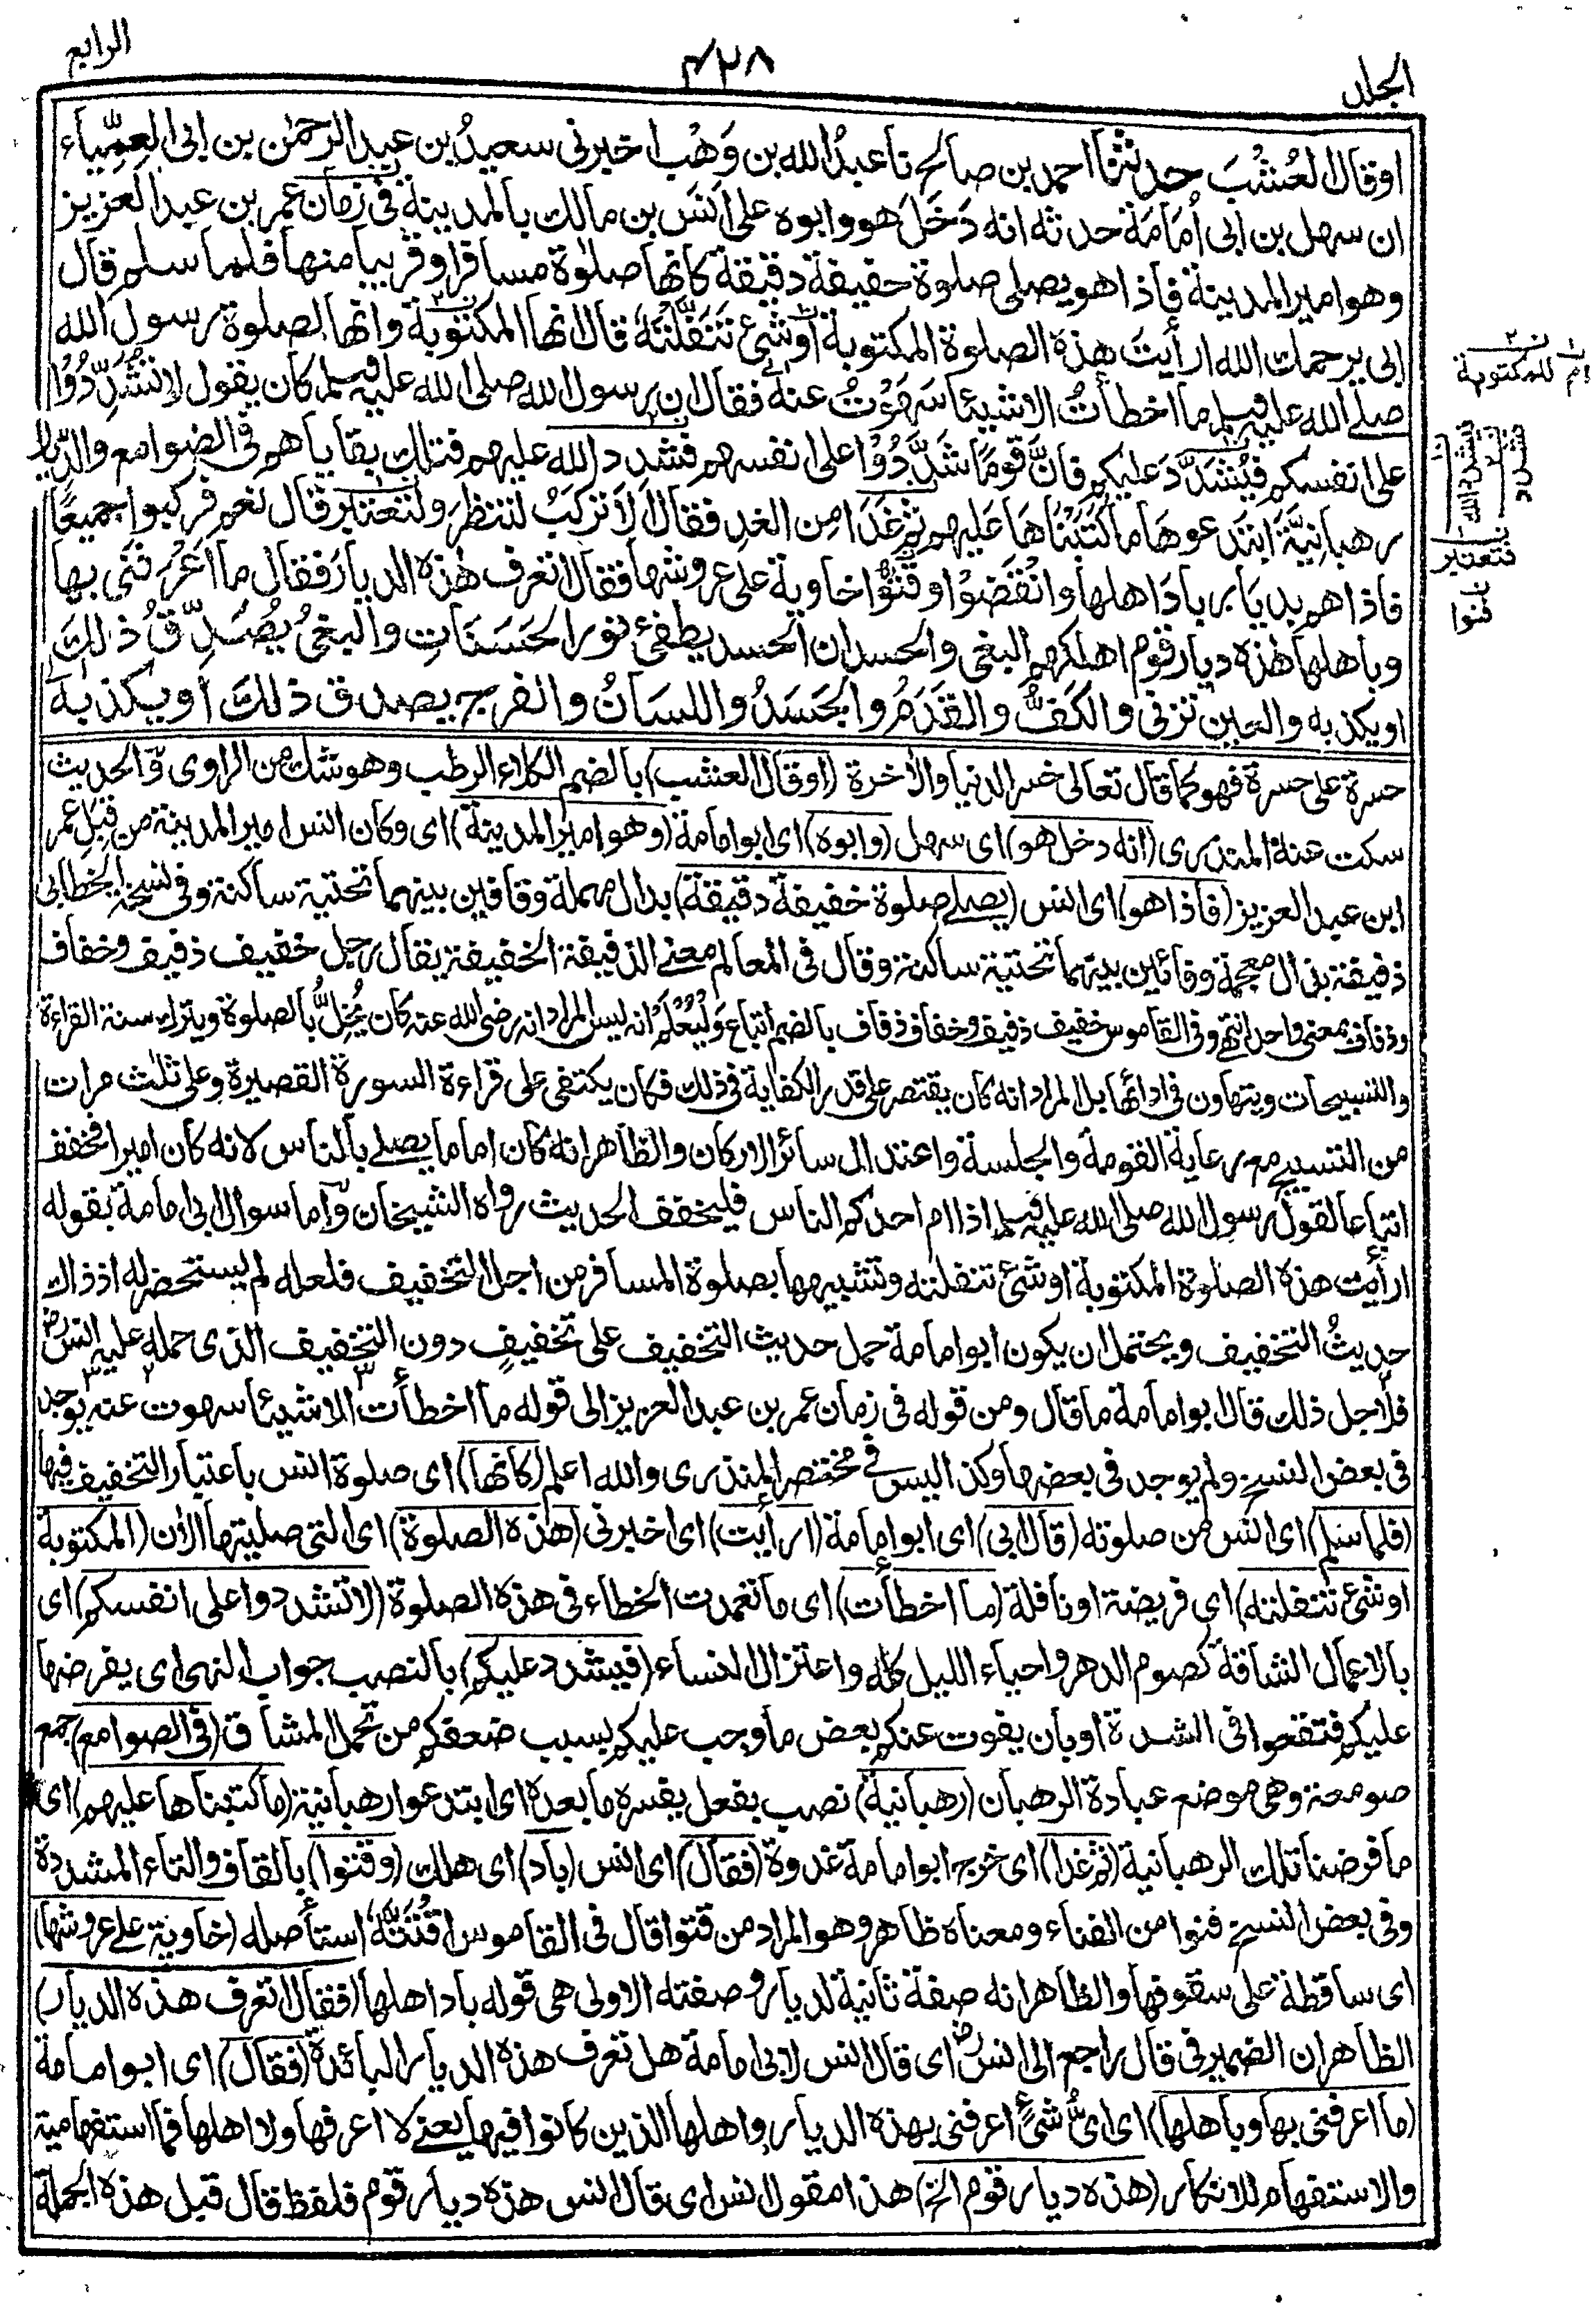 الجلد
٤٢٨
الرابع
او قال العُشْبَ حدثنا احمد بن صالح نا عبدُ الله بن وَهْب اخبرنى سعيدُ بن عبد الرحمٰن بن ابى العمياء
ان سهل بن ابى اُمَامَةَ حدثه انه دَخَلَ هو وابوه على انَسَ بن مالك بالمدينة فى زمان عمر بن عبد العزيز
وهو امير المدينة فاذا هو يصلى صلوة خفيفة دقيقة كانها صلٰوة مسافر او قريبا منها فلما سلم قال
ابى يرحمك الله ارأيتَ هذه الصلوة المكتوبة أوشئ تَنَفَّلْتَهُ قال انها المكتوبة وانها الصلوة رسول الله
صلے الله عليه وسلم ما اخطأتُ الا شيئا سَهَوْتُ عنه فقال ان رسول الله صلى الله عليه وسلم كان يقول لا تُشَدِّدُوْا
على انفسكم فيُشَدَّدَ عليكم فانَّ قومًا شَدَّدُوْا على انفسهم فشدد الله عليهم فتلك بقاياهم فى الصوامع والدِّيار
رهبانِيَّةَ ابْتَدعوهَا ما كَتَبْنَاهَا عَليهم ثم غَدَا من الغدِ فقال اَلَا تركَبُ لتنظرَ ولتعتبر قال نعم فركبوا جميعًا
فاذا هم بديَار بادَ اهلها وانْقَضَوْا وقَتَّوْا خاوية على عروشها فقال اتعرف هٰذه الديارَ فقال ما اَعْرَفَنى بها
وباهلها هٰذه ديار قوم اهلكهم البغى والحسد ان الحسد يطفئ نور الحَسَنَاتِ والبغىُ يُصَدِّقُ ذٰلك
او يكذبه والعين تزنى والكَفُّ والقَدَمُ والجَسَدُ واللسَانُ والفرج يصدق ذلك أو يكذبه
حسرة على حسرة فهو كما قال تعالى خسر الدنيا والآخرة (او قال العشب) بالضم الكلاء الرطب وهو شك من الراوى والحديث
سكت عنه المنذرى (انه دخل هو) اى سهل (وابوه) اى ابو امامة (وهو امير المدينة) اى وكان انس امير المدينة من قِبَلِ عمر
ابن عبد العزيز (فاذا هو) اى انس (يصلے صلوة خفيفة دقيقة) بدال مهملة وقافين بينهما تحتية ساكنة وفى نسخة الخطابى
ذفيفة بذال معجمة وفائين بينهما تحتية ساكنة وقال فى المعالم معنے الذفيفة الخفيفة يقال رجل خفيف ذفيف وخفاف
وذفاف بمعنى واحد انتهى وفى القاموس خفيف ذفيف وخفاف ذفاف بالضم اتباع وَلْيُعْلَمْ انه ليس المراد انه رضى الله عنه كان يُخِلُّ بالصلوة ويترك سنة القراءة
والتسبيحات ويتهاون فى ادائها بل المراد انه كان يقتصر على قدر الكفاية فى ذلك فكان يكتفى على قراءة السورة القصيرة وعلى ثلٰث مرات
من التسبيح مع رعاية القومة والجلسة واعتدال سائر الاركان والظاهر انه كان اماما يصلے بالناس لانه كان اميرا فخفف
اتباعا لقول رسول الله صلى الله عليه وسلم اذا ام احدكم الناس فليخفف الحديث رواه الشيخان وأما سوال ابى امامة بقوله
ارأيت هذه الصلوة المكتوبة او شئ تنفلته وتشبيهها بصلوة المسافر من اجل التخفيف فلعله لم يستحضر له اذ ذاك
حديثُ التخفيف ويحتمل ان يكون ابو امامة حمل حديث التخفيف على تخفيفٍ دون التخفيف الذى حمله عليه انس رض
فلأجل ذلك قال ابو امامة ما قال ومن قوله فى زمان عمر بن عبد العزيز الى قوله ما اخطأت الا شيئا سهوت عنه يوجد
فى بعض النسخ ولم يوجد فى بعضها وكذا ليس فى مختصر المنذرى والله اعلم (كانها) اى صلوة انس باعتبار التخفيف فيها
(فلما سلم) اى انس من صلوته (قال ابى) اى ابو امامة (ارأيت) اى اخبرنى (هذه الصلوة) اى التى صليتها الآن (المكتوبة
اوشئ تنفلته) اى فريضة او نافلة (ما اخطأت) اى ما تعمدت الخطاء فى هذه الصلوة (لا تشددوا على انفسكم) اى
بالاعمال الشاقة كصوم الدهر واحياء الليل كله واعتزال النساء (فيشدد عليكم) بالنصب جواب النهى اى يفرضها
عليكم فتقعوا فى الشدة او بان يفوت عنكم بعض ما وجب عليكم بسبب ضعفكم من تحمل المشاق (فى الصوامع) جمع
صومعة وهى موضع عبادة الرهبان (رهبانية) نصب بفعل يفسره ما بعده اى ابتدعوا رهبانية (ما كتبناها عليهم) اى
ما فرضنا تلك الرهبانية (ثم غدا) اى خرج ابو امامة غدوة (فقال) اى انس (باد) اى هلك (وقتوا) بالقاف والتاء المشددة
وفى بعض النسخ فنوا من الفناء ومعناه ظاهر وهو المراد من قتوا قال فى القاموس اقْتَتَّهُ استأصله (خاوية على عروشها)
اى ساقطة على سقوفها والظاهر انه صفة ثانية لديار وصفته الاولى هى قوله باد اهلها (فقال اتعرف هذه الديار)
الظاهر ان الضمير فى قال راجع الى انس رض اى قال انس لابى امامة هل تعرف هذه الديار البائدة (فقال) اى ابو امامة
(ما اعرفنى بها وباهلها) اى اىُّ شئٍ اعرفنى بهذه الديار واهلها الذين كانوا فيها يعنے لا اعرفها ولا اهلها فما استفهامية
والاستفهام للانكار (هذه ديار قوم الخ) هذا مقول انس اى قال انس هذه ديار قوم فلفظ قال قبل هذه الجملة
ام للمكتوبة
فشدد الله
شدد
فتعتبر
فنوا